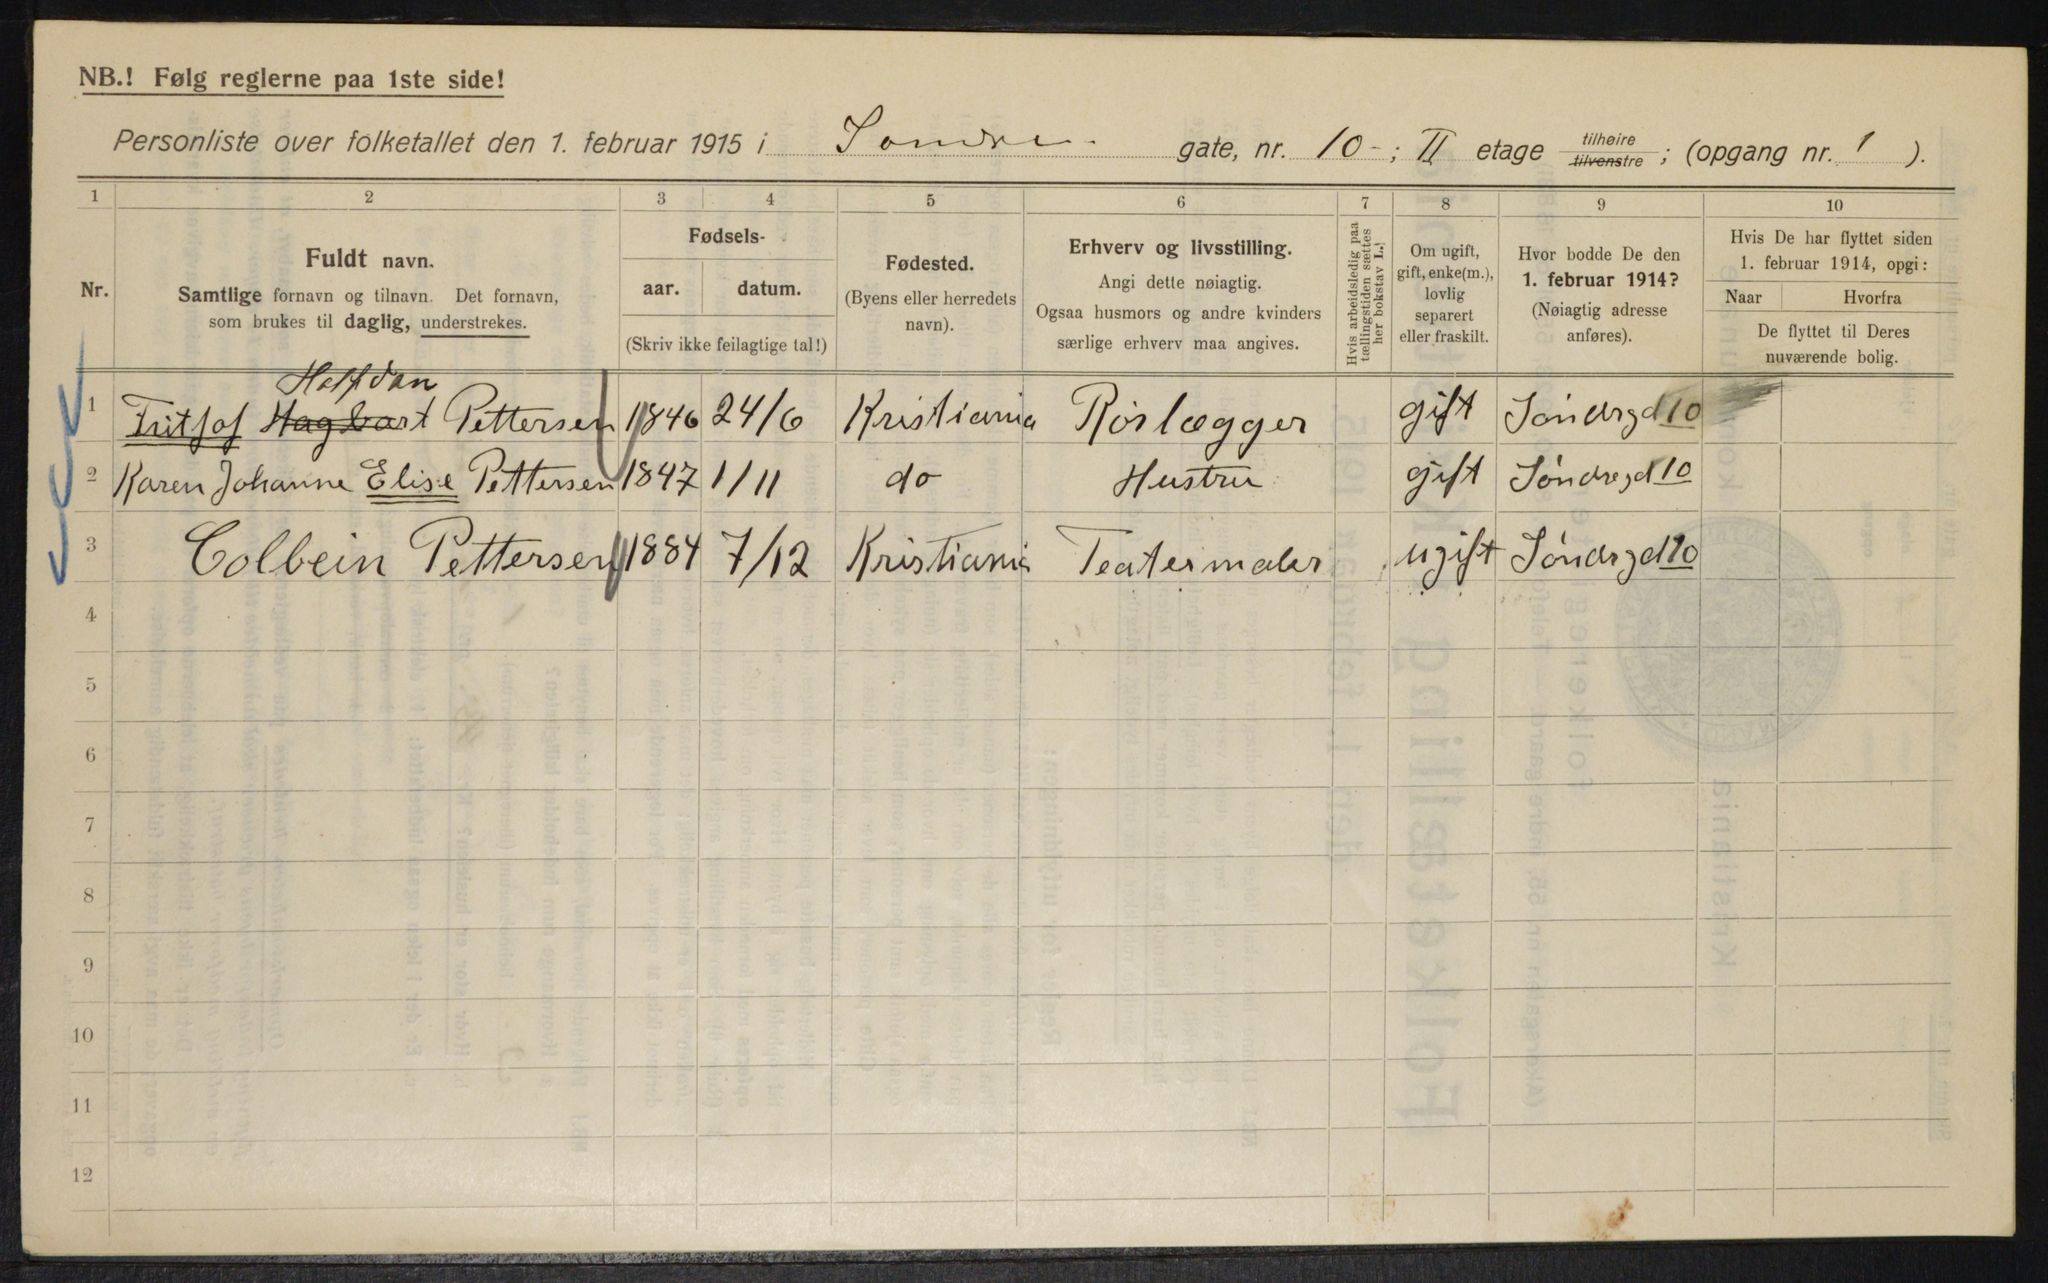 NB.! Følg reglerne paa 1ste side!
Personliste over folketallet den 1. februar 1915 i Søndre gate, nr. 10 ; II etage tilhøire / tilvenstre ; (opgang nr. 1 ).
1 2 3 4 5 6 7 8 9 10
Nr.
Fuldt navn.
Samtlige fornavn og tilnavn. Det fornavn,
som brukes til daglig, understrekes.
Fødsels-
aar. datum.
(Skriv ikke feilagtige tal!)
Fødested.
(Byens eller herredets
navn).
Erhverv og livsstilling.
Angi dette nøiagtig.
Ogsaa husmors og andre kvinders
særlige erhverv maa angives.
Hvis arbeidsledig paa
tællingstiden sættes
her bokstav L.
Om ugift,
gift, enke(m.),
lovlig
separert
eller fraskilt.
Hvor bodde De den
1. februar 1914?
(Nøiagtig adresse
anføres).
Hvis De har flyttet siden
1. februar 1914, opgi:
Naar Hvorfra
De flyttet til Deres
nuværende bolig.
Halfdan
1 Fritjof Hagbart Pettersen 1846 24/6 Kristiania Rørlægger gift Søndregd 10
2 Karen Johanne Elise Pettersen 1847 1/11 do Hustru gift Søndregd 10
3 Colbein Pettersen 1884 7/12 Kristiania Teatermaler ugift Søndregd 10
4
5
6
7
8
9
10
11
12